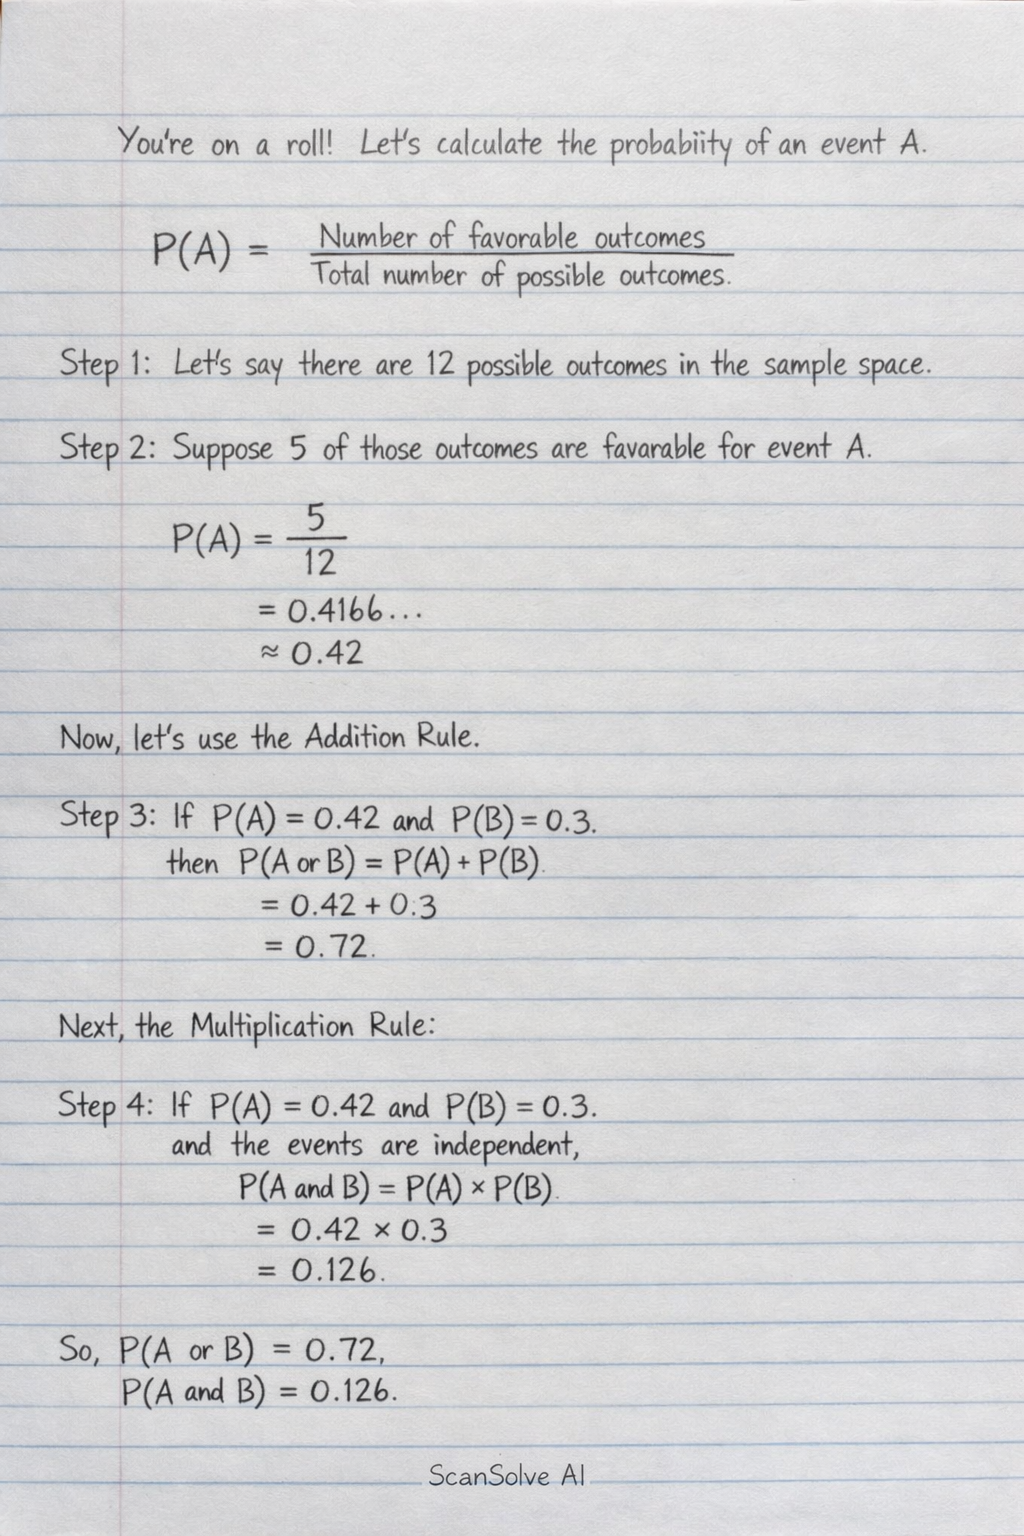 You're on a roll! Let's calculate the probabiity of an event A.
P(A) = Number of favorable outcomes
Total number of possible outcomes.
Step 1: Let's say there are 12 possible outcomes in the sample space.
Step 2: Suppose 5 of those outcomes are favarable for event A.
P(A) = 5
12
= 0.4166...
≈ 0.42
Now, let's use the Addition Rule.
Step 3: If P(A) = 0.42 and P(B) = 0.3.
then P(A or B) = P(A) + P(B).
= 0.42 + 0.3
= 0.72.
Next, the Multiplication Rule:
Step 4: If P(A) = 0.42 and P(B) = 0.3.
and the events are independent,
P(A and B) = P(A) × P(B).
= 0.42 × 0.3
= 0.126.
So, P(A or B) = 0.72,
P(A and B) = 0.126.
ScanSolve AI